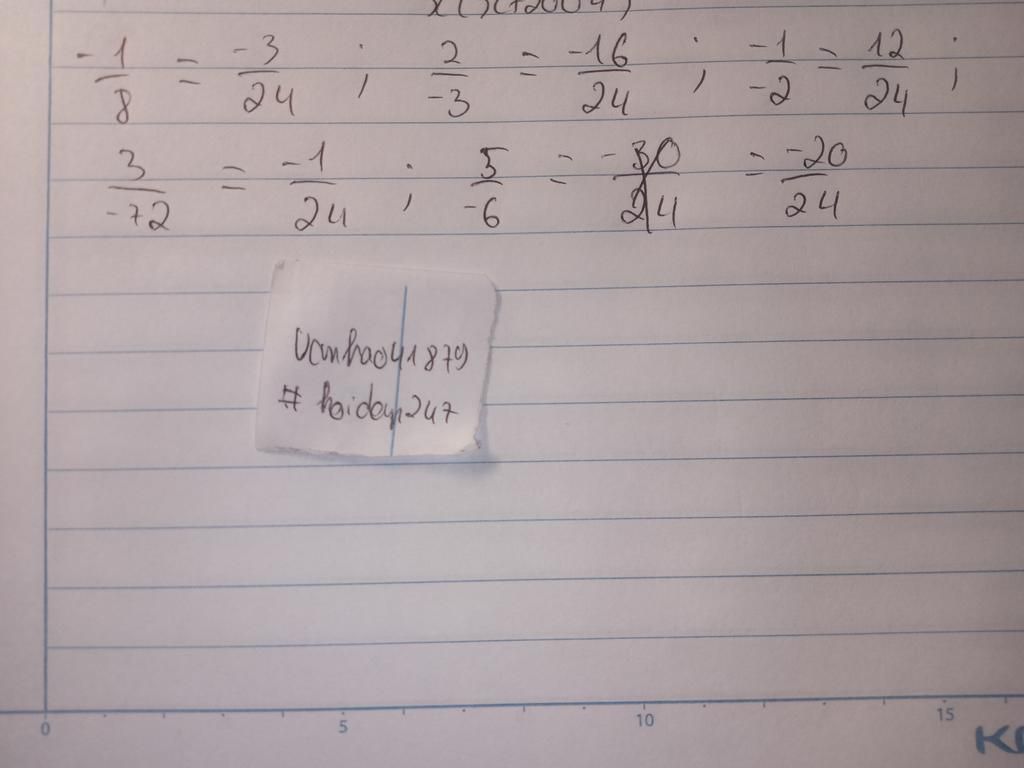 x(x+2004)
-1/8 = -3/24 ; 2/-3 = -16/24 ; -1/-2 = 12/24 ;
3/-72 = -1/24 ; 5/-6 = -30/24 = -20/24
Vanhao041879
# hoidap247
0 5 10 15